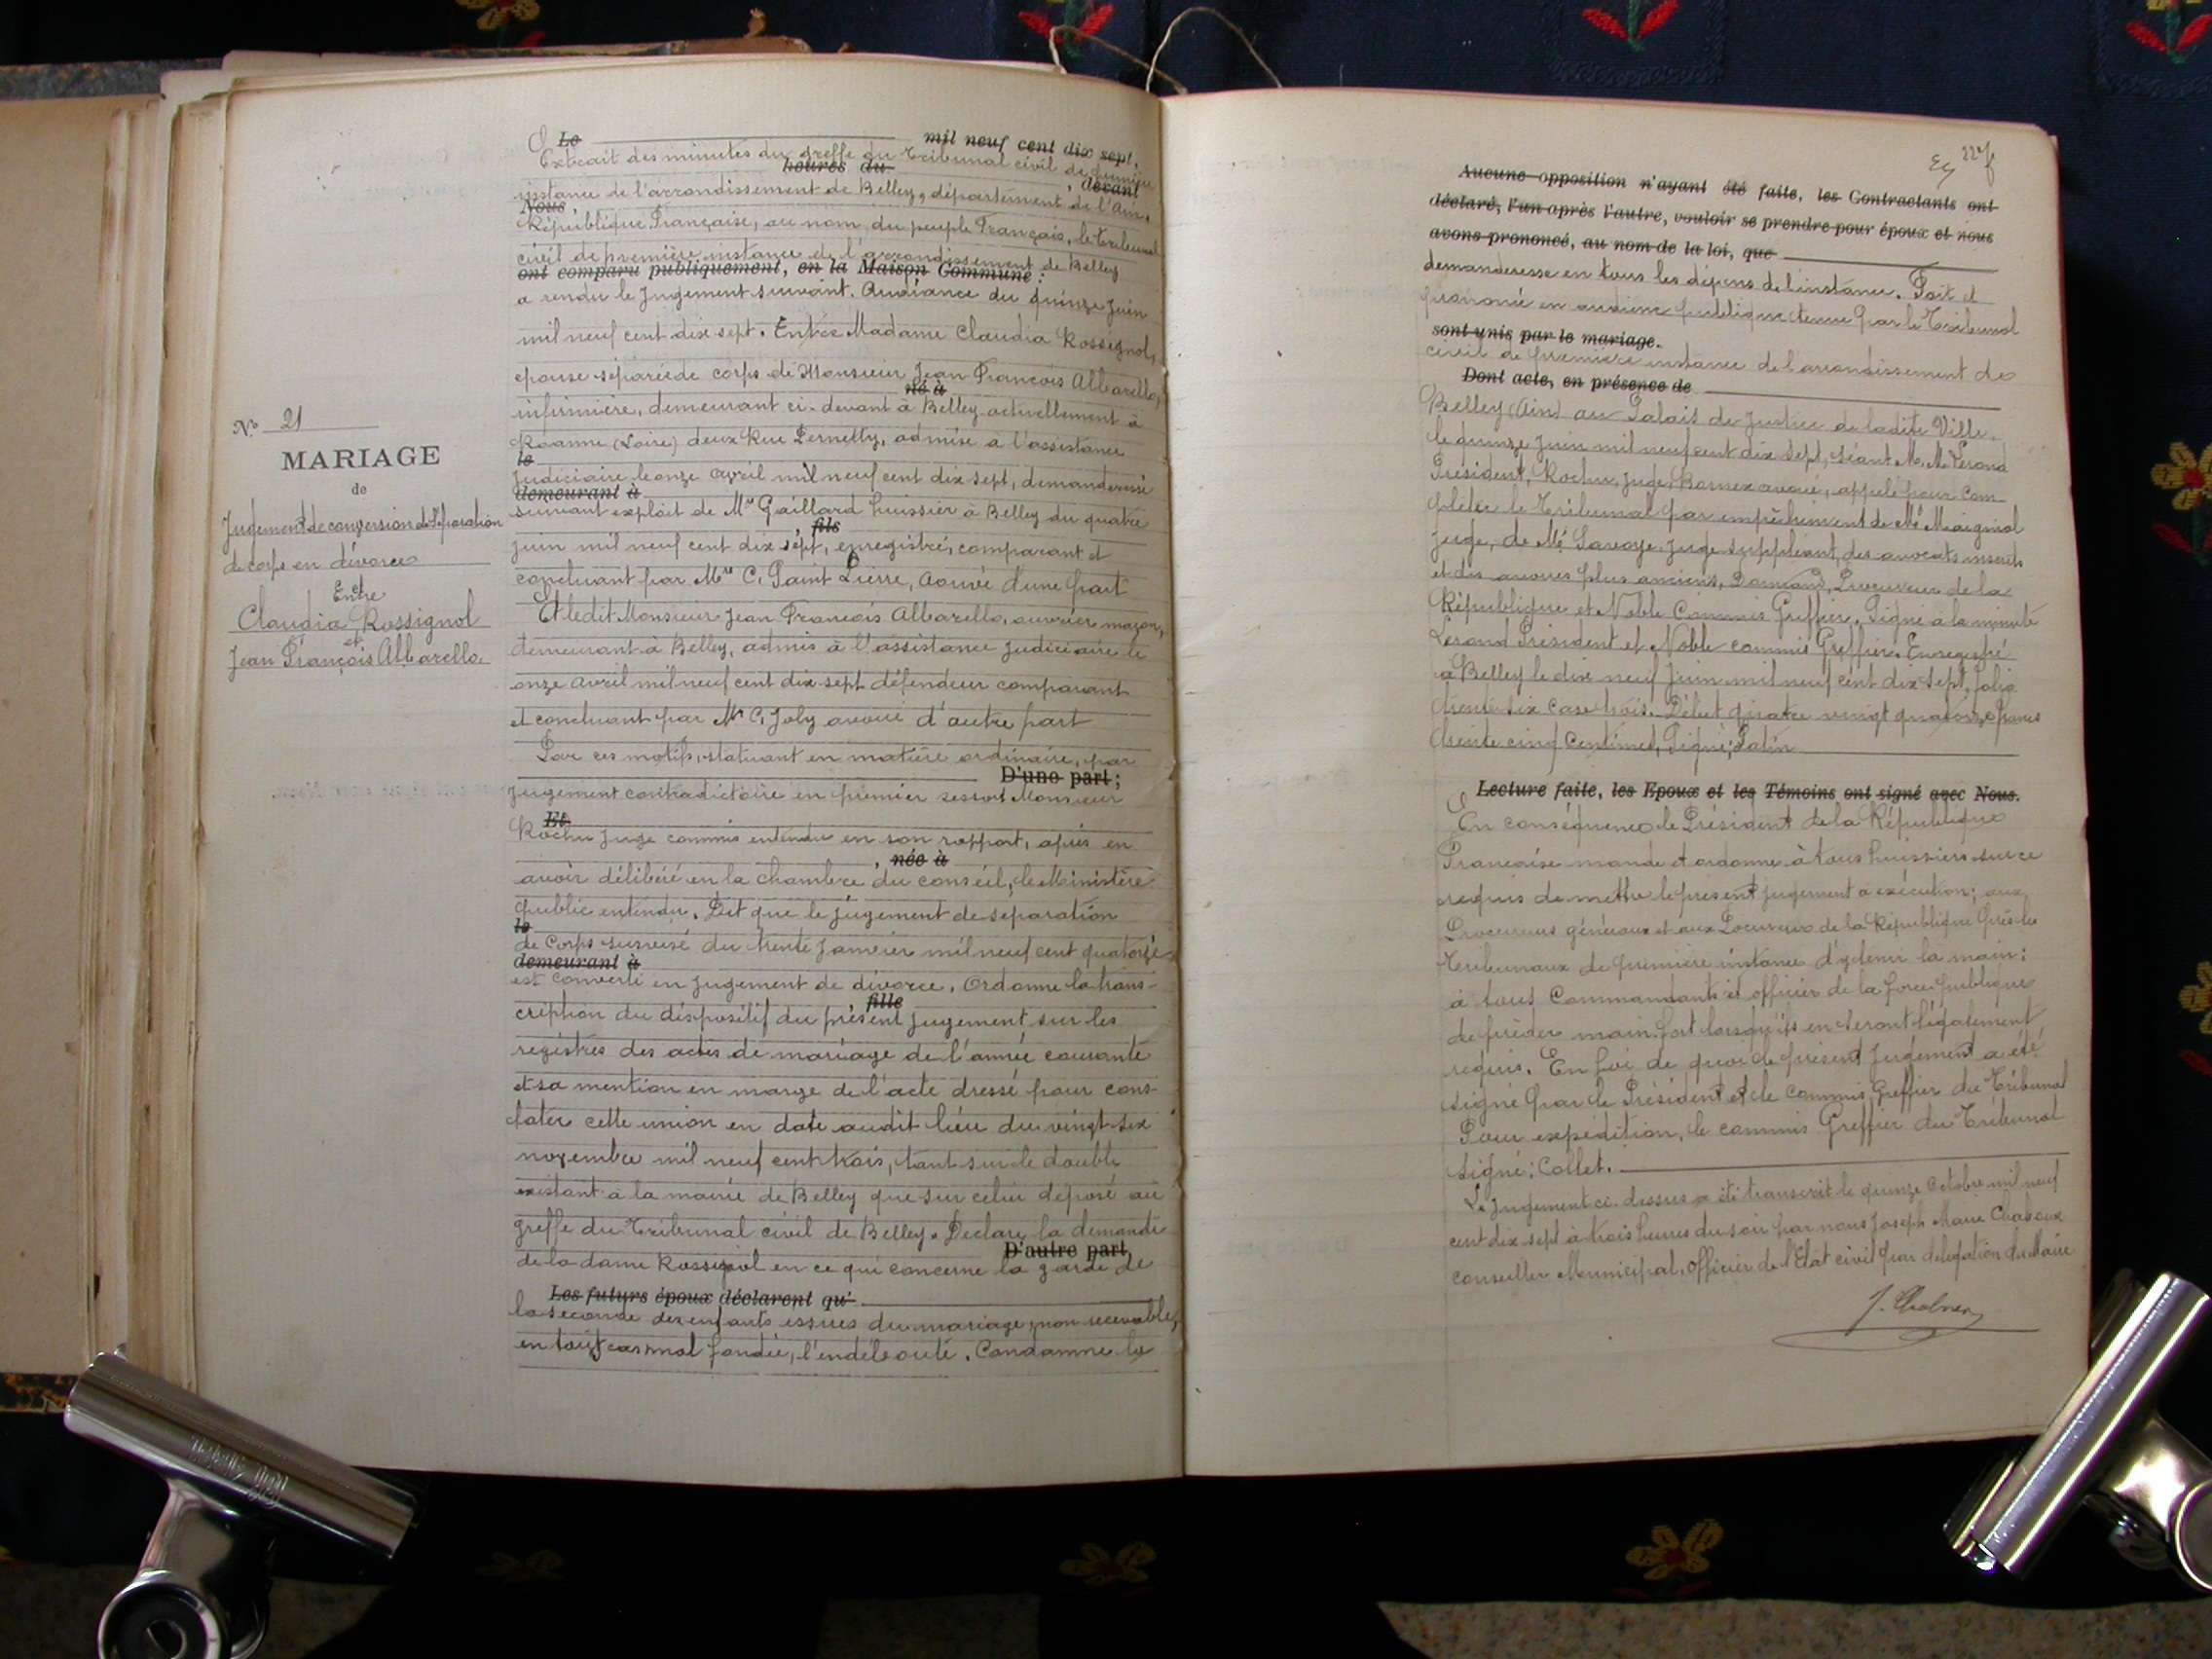 N° 21
MARIAGE
de
Jugement de conversion de séparation
de corps en divorce
Entre
Claudia Rossignol
et
Jean François Albarello.
Le mil neuf cent dix sept,
Extrait des minutes du greffe du Tribunal civil de première
heures du , devant
instance de l'arrondissement de Belley, département de l'Ain.
Nous
République Française, au nom du peuple Français, le Tribunal
civil de première instance de l'arrondissement de Belley
ont comparu publiquement, en la Maison Commune :
a rendu le Jugement suivant. Audiance du quinze Juin
mil neuf cent dix sept. Entre Madame Claudia Rossignol,
épouse séparée de corps de Monsieur Jean François Albarello,
né à
infirmière, demeurant ci-devant à Belley actuellement à
Roanne (Loire) deux Rue Pernetty, admise à l'assistance
le
Judiciaire le onze avril mil neuf cent dix sept, demanderesse
demeurant à
suivant exploit de Me Gaillard huissier à Belley du quatre
, fils
juin mil neuf cent dix sept, enregistré, comparant et
concluant par Me C. Saint Pierre, avoué d'une part
Et ledit Monsieur Jean François Albarello, ouvrier maçon,
demeurant à Belley, admis à l'assistance Judiciaire le
onze avril mil neuf cent dix sept défendeur comparant
et concluant par Me C. Joly avoué d'autre part
Par ces motifs, statuant en matière ordinaire, par
D'une part ;
jugement contradictoire en premier ressort Monsieur
Et
Rochu Juge commis entendu en son rapport, après en
, née à
avoir délibéré en la chambre du conseil, le Ministère
public entendu. Dit que le jugement de séparation
le
de Corps susvisé du trente Janvier mil neuf cent quatorze
demeurant à
est converti en jugement de divorce. Ordonne la trans-
, fille
cription du dispositif du présent jugement sur les
registres des actes de mariage de l'année courante
et sa mention en marge de l'acte dressé pour cons-
tater cette union en date audit lieu du vingt six
novembre mil neuf cent trois, tant sur le double
existant à la mairie de Belley que sur celui déposé au
greffe du Tribunal civil de Belley. Déclare la demande
D'autre part,
de la dame Rossignol en ce qui concerne la garde de
Les futurs époux déclarent qu'
la seconde des enfants issues du mariage, non recevable,
en tout cas mal fondée, l'en déboute. Condamne la
227
Aucune opposition n'ayant été faite, les Contractants ont
déclaré, l'un après l'autre, vouloir se prendre pour époux et nous
avons prononcé, au nom de la loi, que
demanderesse en tous les dépens de l'instance. Fait et
prononcé en audience publique tenue par le Tribunal
sont unis par le mariage.
civil de première instance de l'arrondissement de
Dont acte, en présence de
Belley (Ain) au Palais de Justice de ladite Ville.
le quinze Juin mil neuf cent dix sept, séant M. M. Perond
Président, Rochu, Juge, avoué, appelé pour com-
pleter le Tribunal par empêchement de Mr Maignol
Juge, de Mr Savoye, Juge suppléant, des avocats inscrits
et des avoués plus anciens, Procureur de la
République et Noble Commis Greffier. Signé à la minute
Perond Président et Noble commis Greffier. Enregistré
à Belley le dix neuf Juin mil neuf cent dix sept, folio
trente six case trois. Débet quatre vingt quatorze francs
trente cinq Centimes, Signé; Patin
Lecture faite, les Epoux et les Témoins ont signé avec Nous.
En conséquence le Président de la République
Française mande et ordonne à tous huissiers sur ce
requis de mettre le présent jugement à exécution; aux
Procureurs généraux et aux Procureurs de la République près les
Tribunaux de première instance d'y tenir la main:
à tous Commandants et officier de la force publique
de prêter main fort lorsqu'ils en seront légalement
requis. En foi de quoi le présent Jugement a été
signé par le Président et le commis Greffier du Tribunal
Pour expédition, le commis Greffier du Tribunal
signé; Collet.
Le Jugement ci-dessus a été transcrit le quinze Octobre mil neuf
cent dix sept à trois heures du soir par nous Joseph Marie
conseiller Municipal, officier de l'Etat civil par délégation du Maire